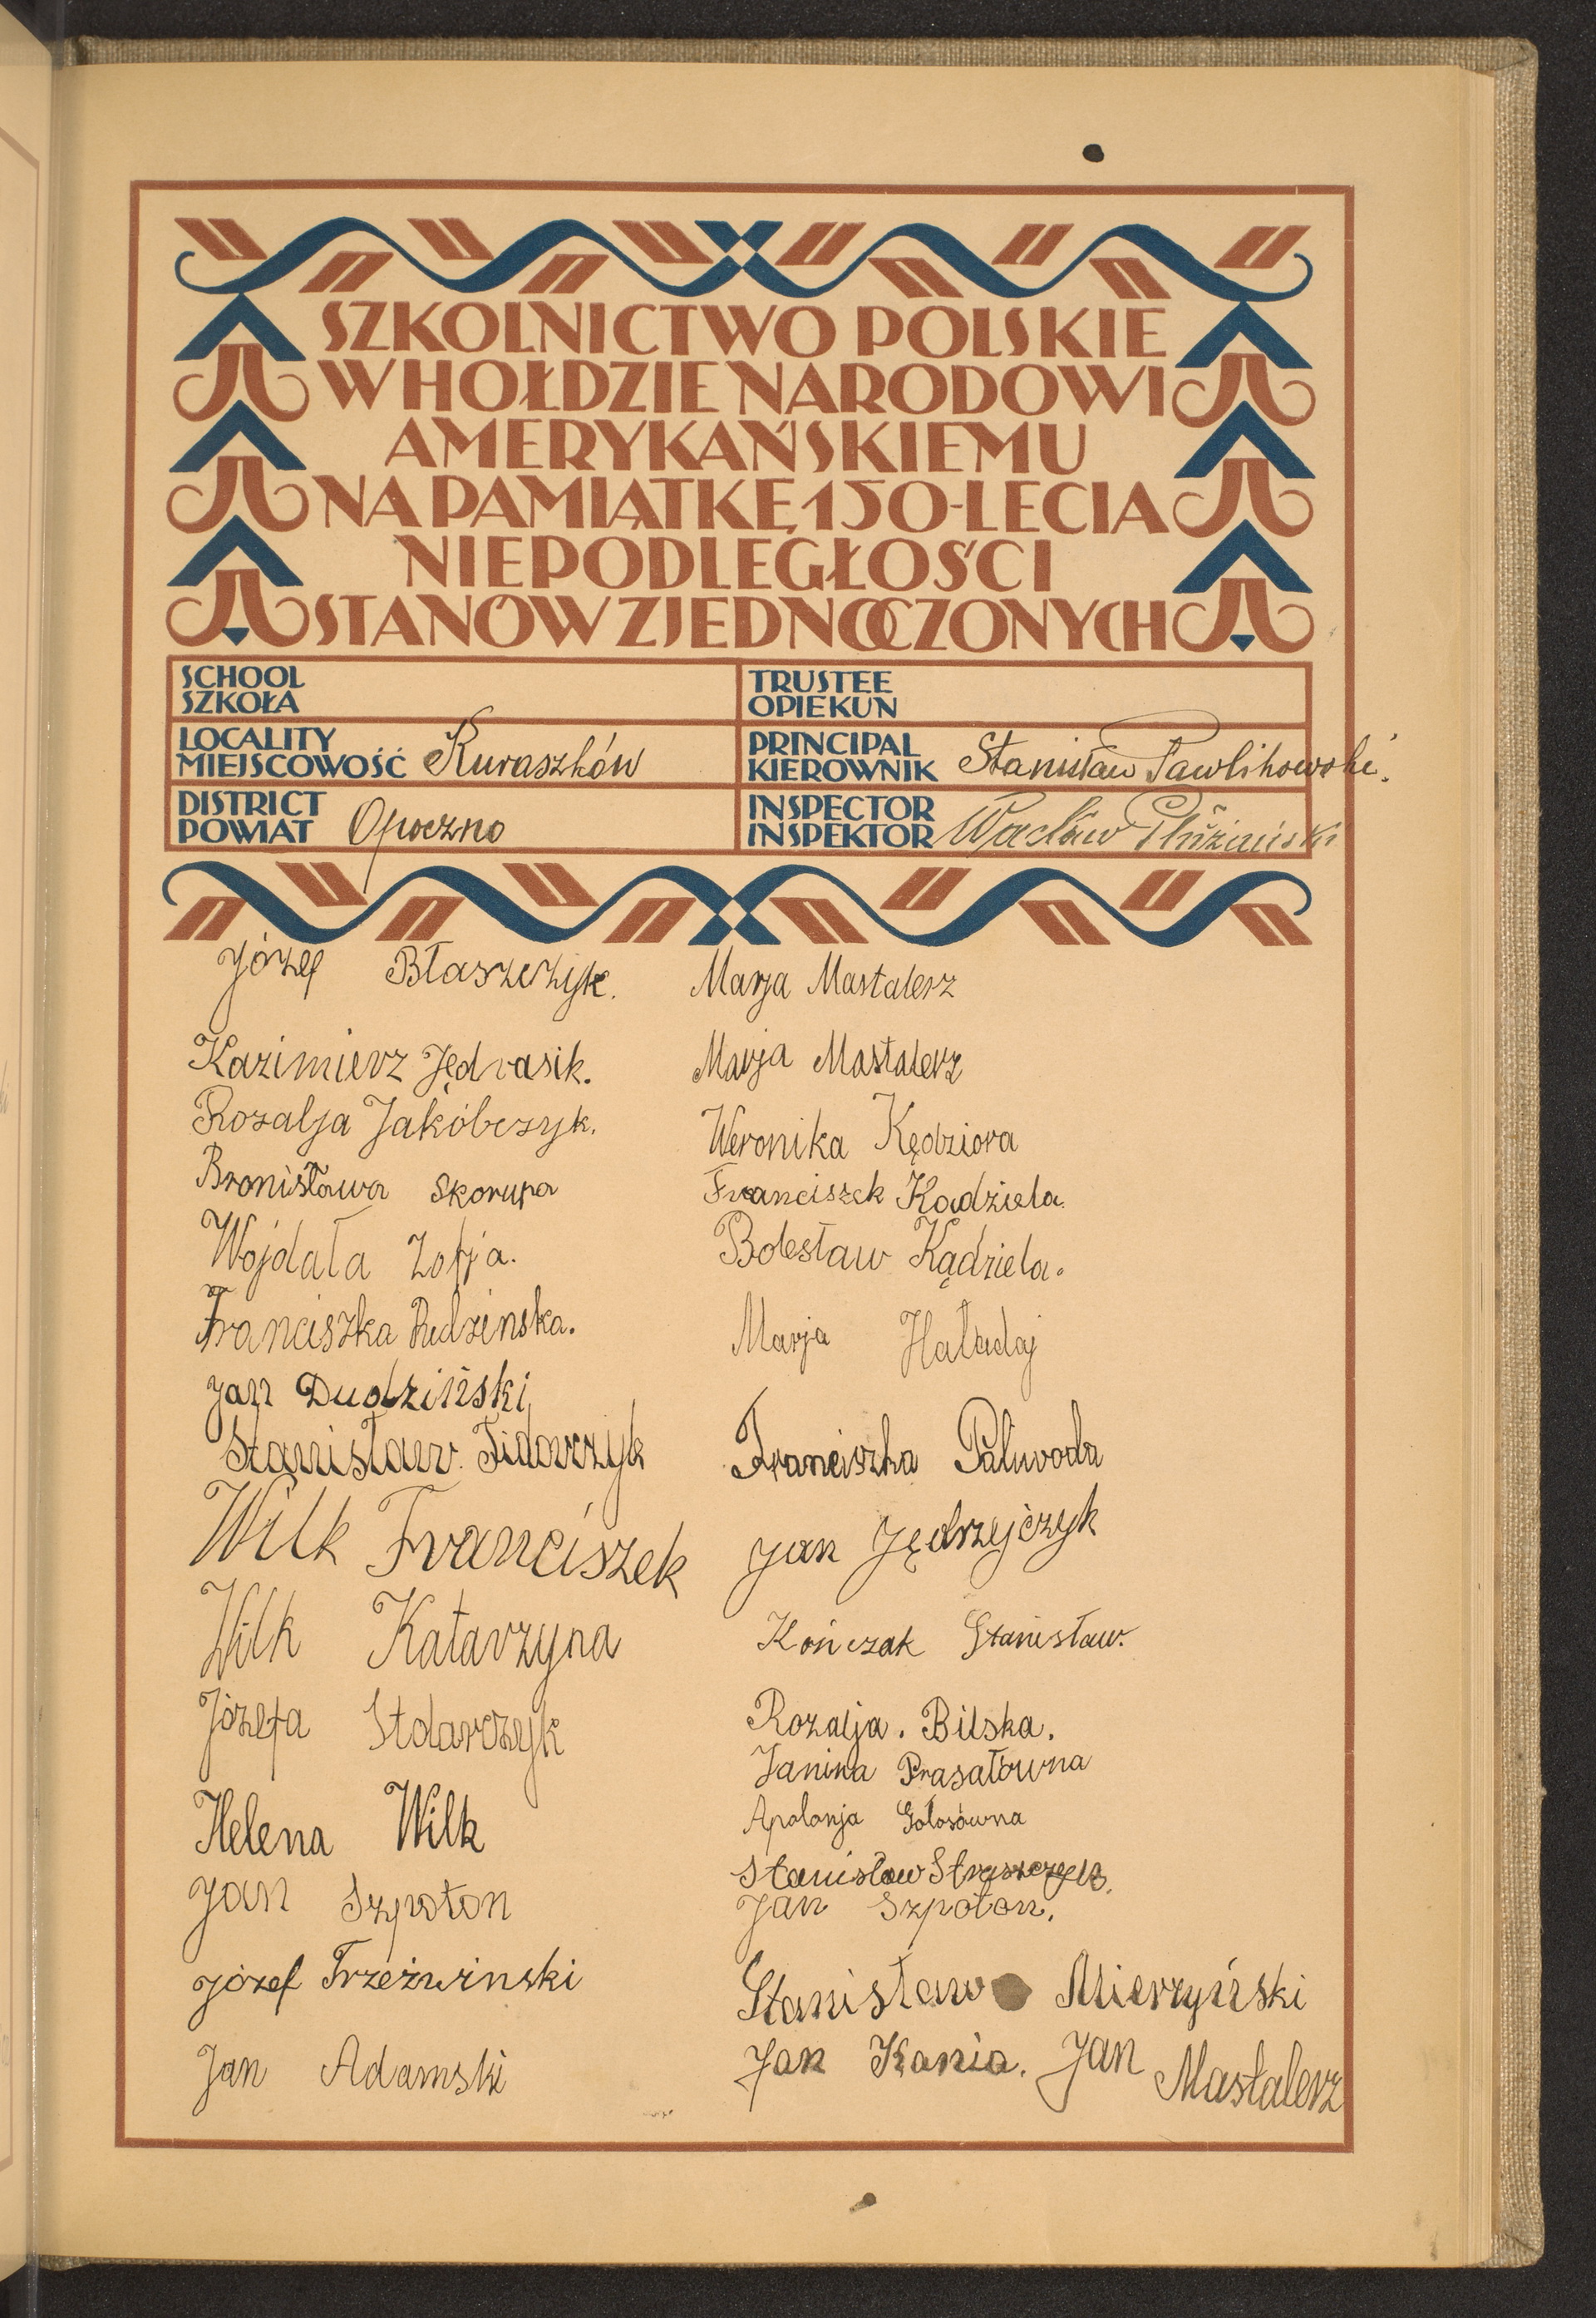 SZKOLNICTWO POLSKIE
W HOŁDZIE NARODOWI
AMERYKAŃSKIEMU
NA PAMIĄTKĘ 150-LECIA
NIEPODLEGŁOŚCI
STANÓW ZJEDNOCZONYCH
SCHOOL
SZKOŁA
TRUSTEE
OPIEKUN
LOCALITY
MIEJSCOWOŚĆ Kuraszków
PRINCIPAL
KIEROWNIK Stanisław Pawlikowski.
DISTRICT
POWIAT Opoczno
INSPECTOR
INSPEKTOR Wacław Płużański
Józef Błaszczyk.
Kazimierz Jędrasik.
Rozalja Jakóbczyk.
Bronisława Skorupa
Wojdała Zofja.
Franciszka Rudzinska.
Jan Dudziński
Stanisław Fidorczyk
Wilk Franciszek
Wilk Katarzyna
Józefa Stolarczyk
Helena Wilk
Jan Szpoton
Józef Trzeźwinski
Jan Adamski
Marja Mastalerz
Marja Mastalerz
Weronika Kędziora
Franciszek Kadziela.
Bolesław Kądziela.
Marja Haładaj
Franciszka Paluvoda
Jan Jędrzejczyk
Kończak Stanisław.
Rozalja. Bilska.
Janina Prasałówna
Apolonja Gołosówna
Stanisław Straszczyk.
Jan Szpoton.
Stanisław Mierzyński
Jan Kania. Jan Mastalerz